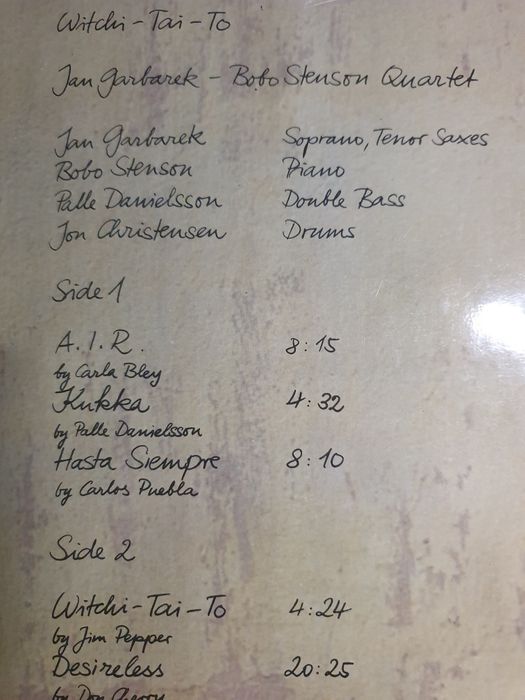 Witchi-Tai-To
Jan Garbarek - Bobo Stenson Quartet
Jan Garbarek Soprano, Tenor Saxes
Bobo Stenson Piano
Palle Danielsson Double Bass
Jon Christensen Drums
Side 1
A.I.R. 8:15
by Carla Bley
Kukka 4:32
by Palle Danielsson
Hasta Siempre 8:10
by Carlos Puebla
Side 2
Witchi-Tai-To 4:24
by Jim Pepper
Desireless 20:25
by Don Cherry